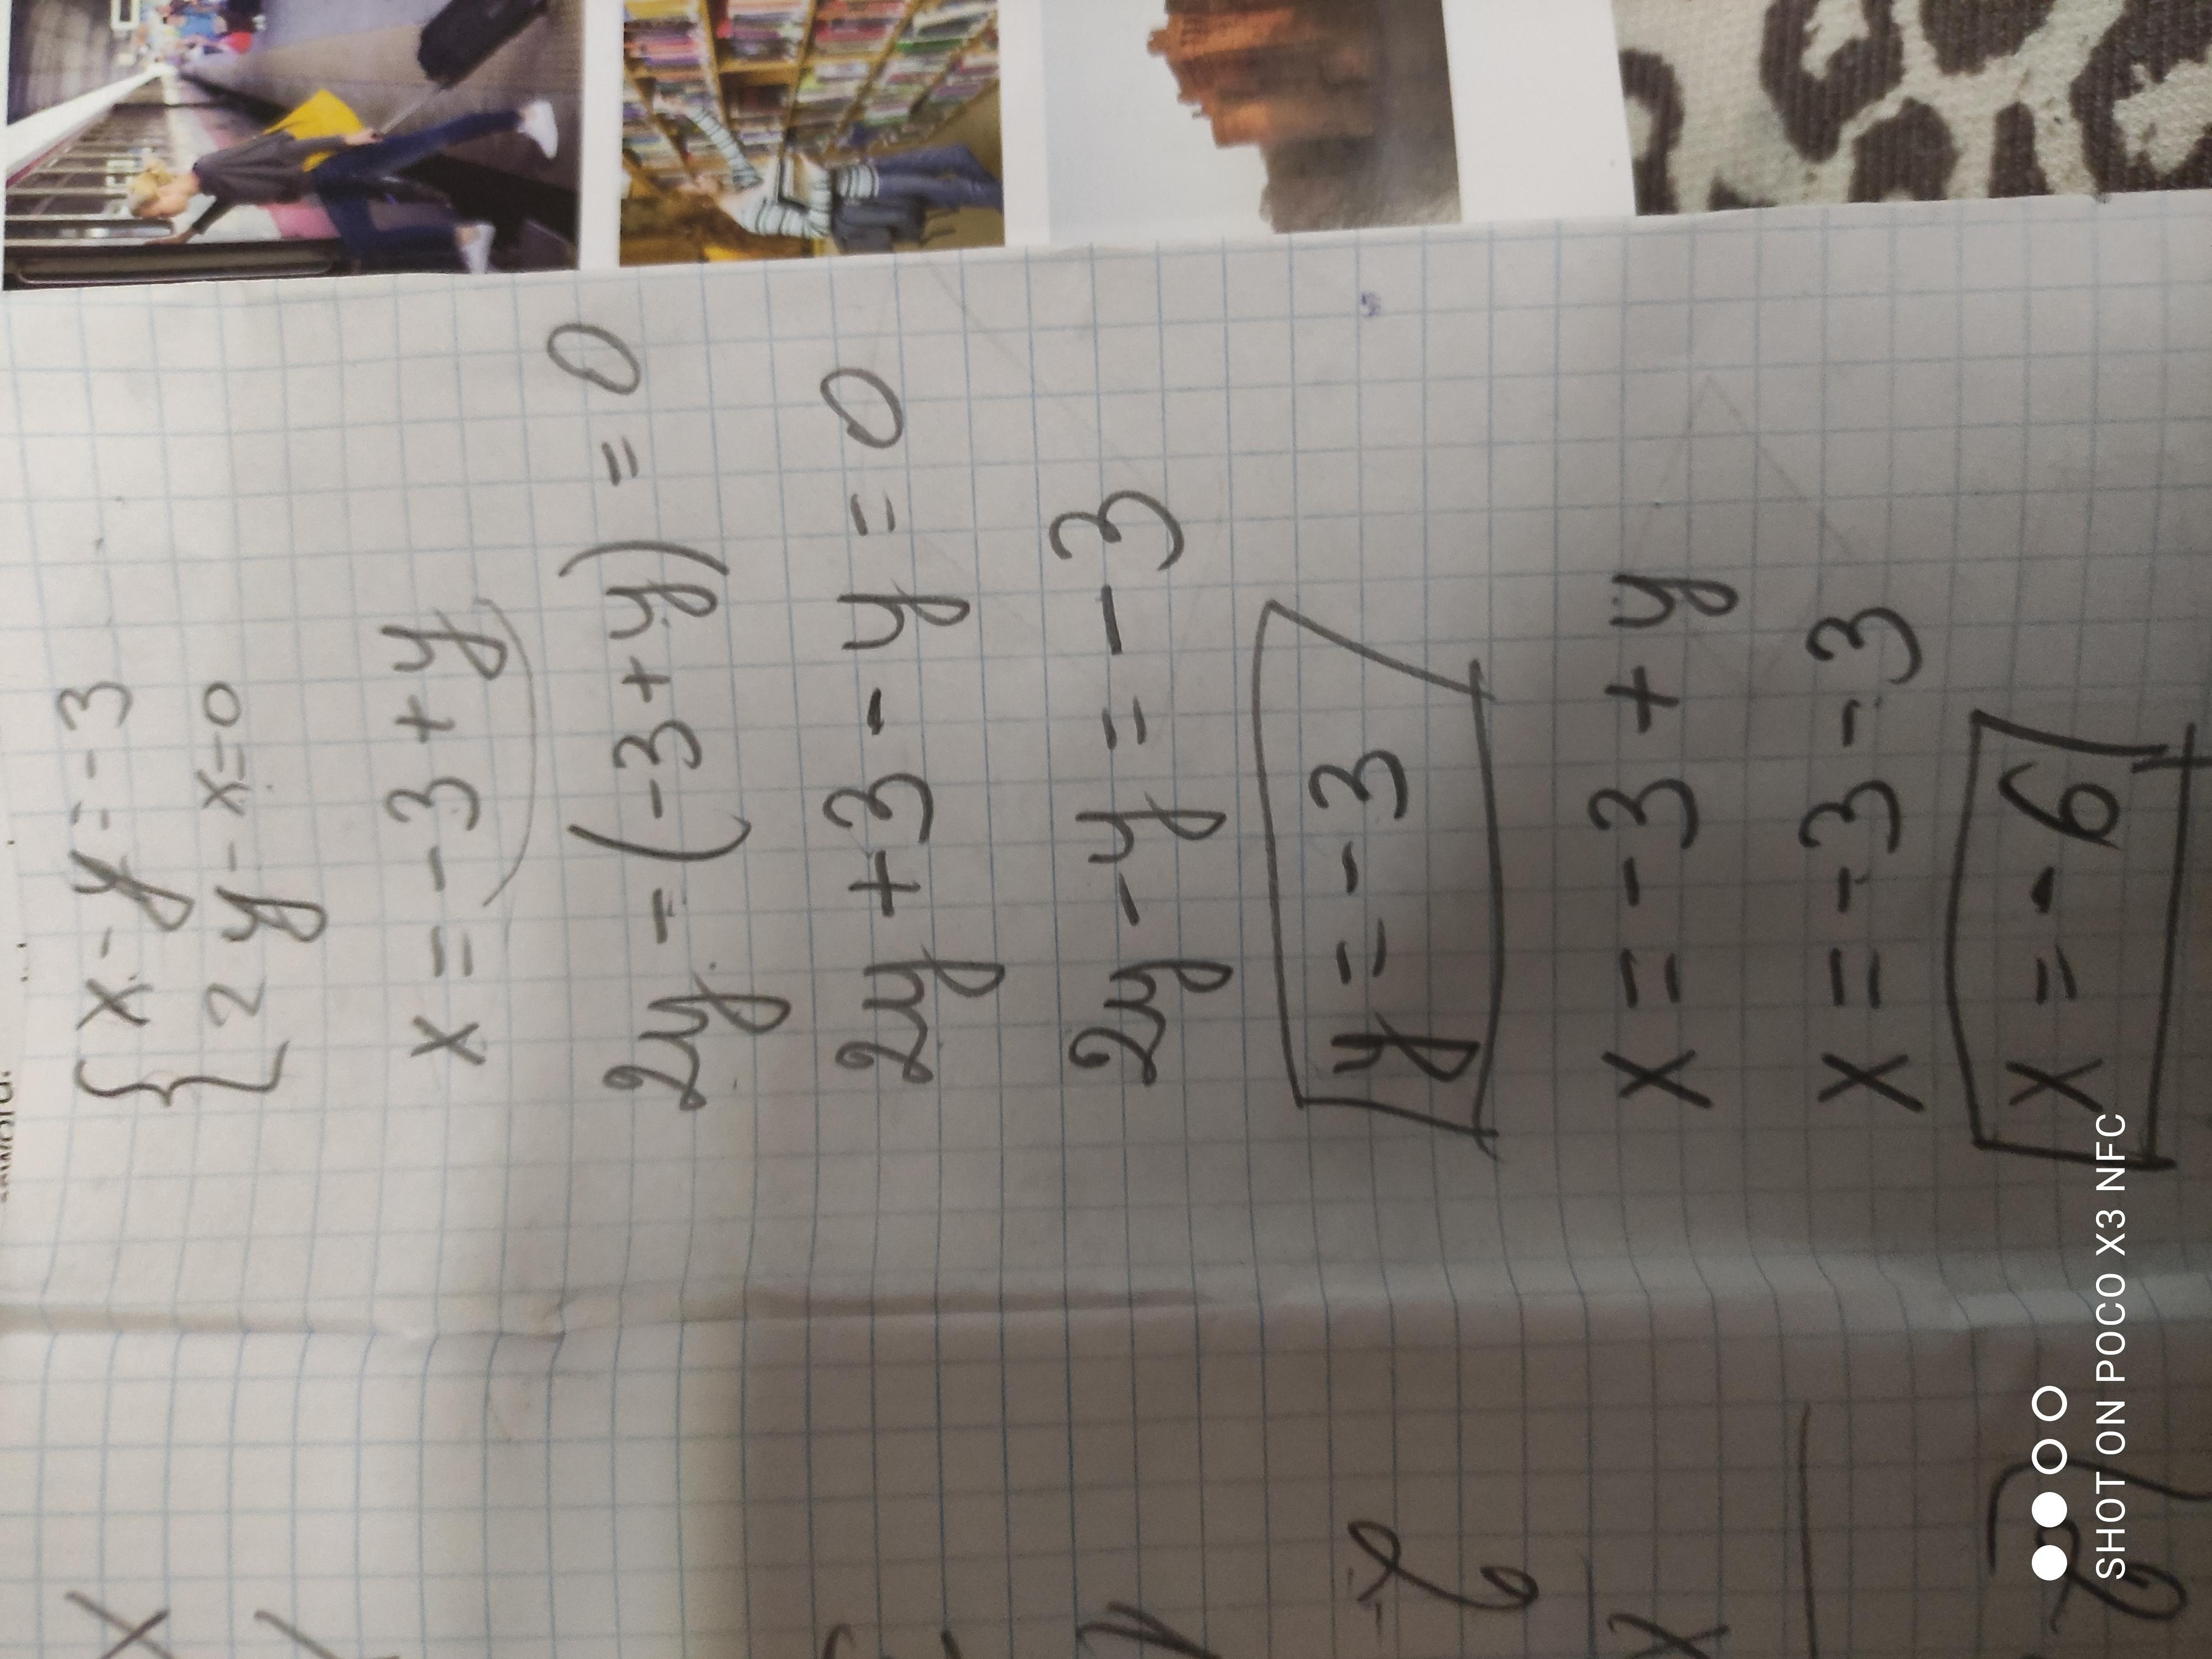 { x - y = -3
2y - x = 0
x = -3 + y
2y - (-3 + y) = 0
2y + 3 - y = 0
2y - y = -3
y = -3
x = -3 + y
x = -3 - 3
x = -6
SHOT ON POCO X3 NFC